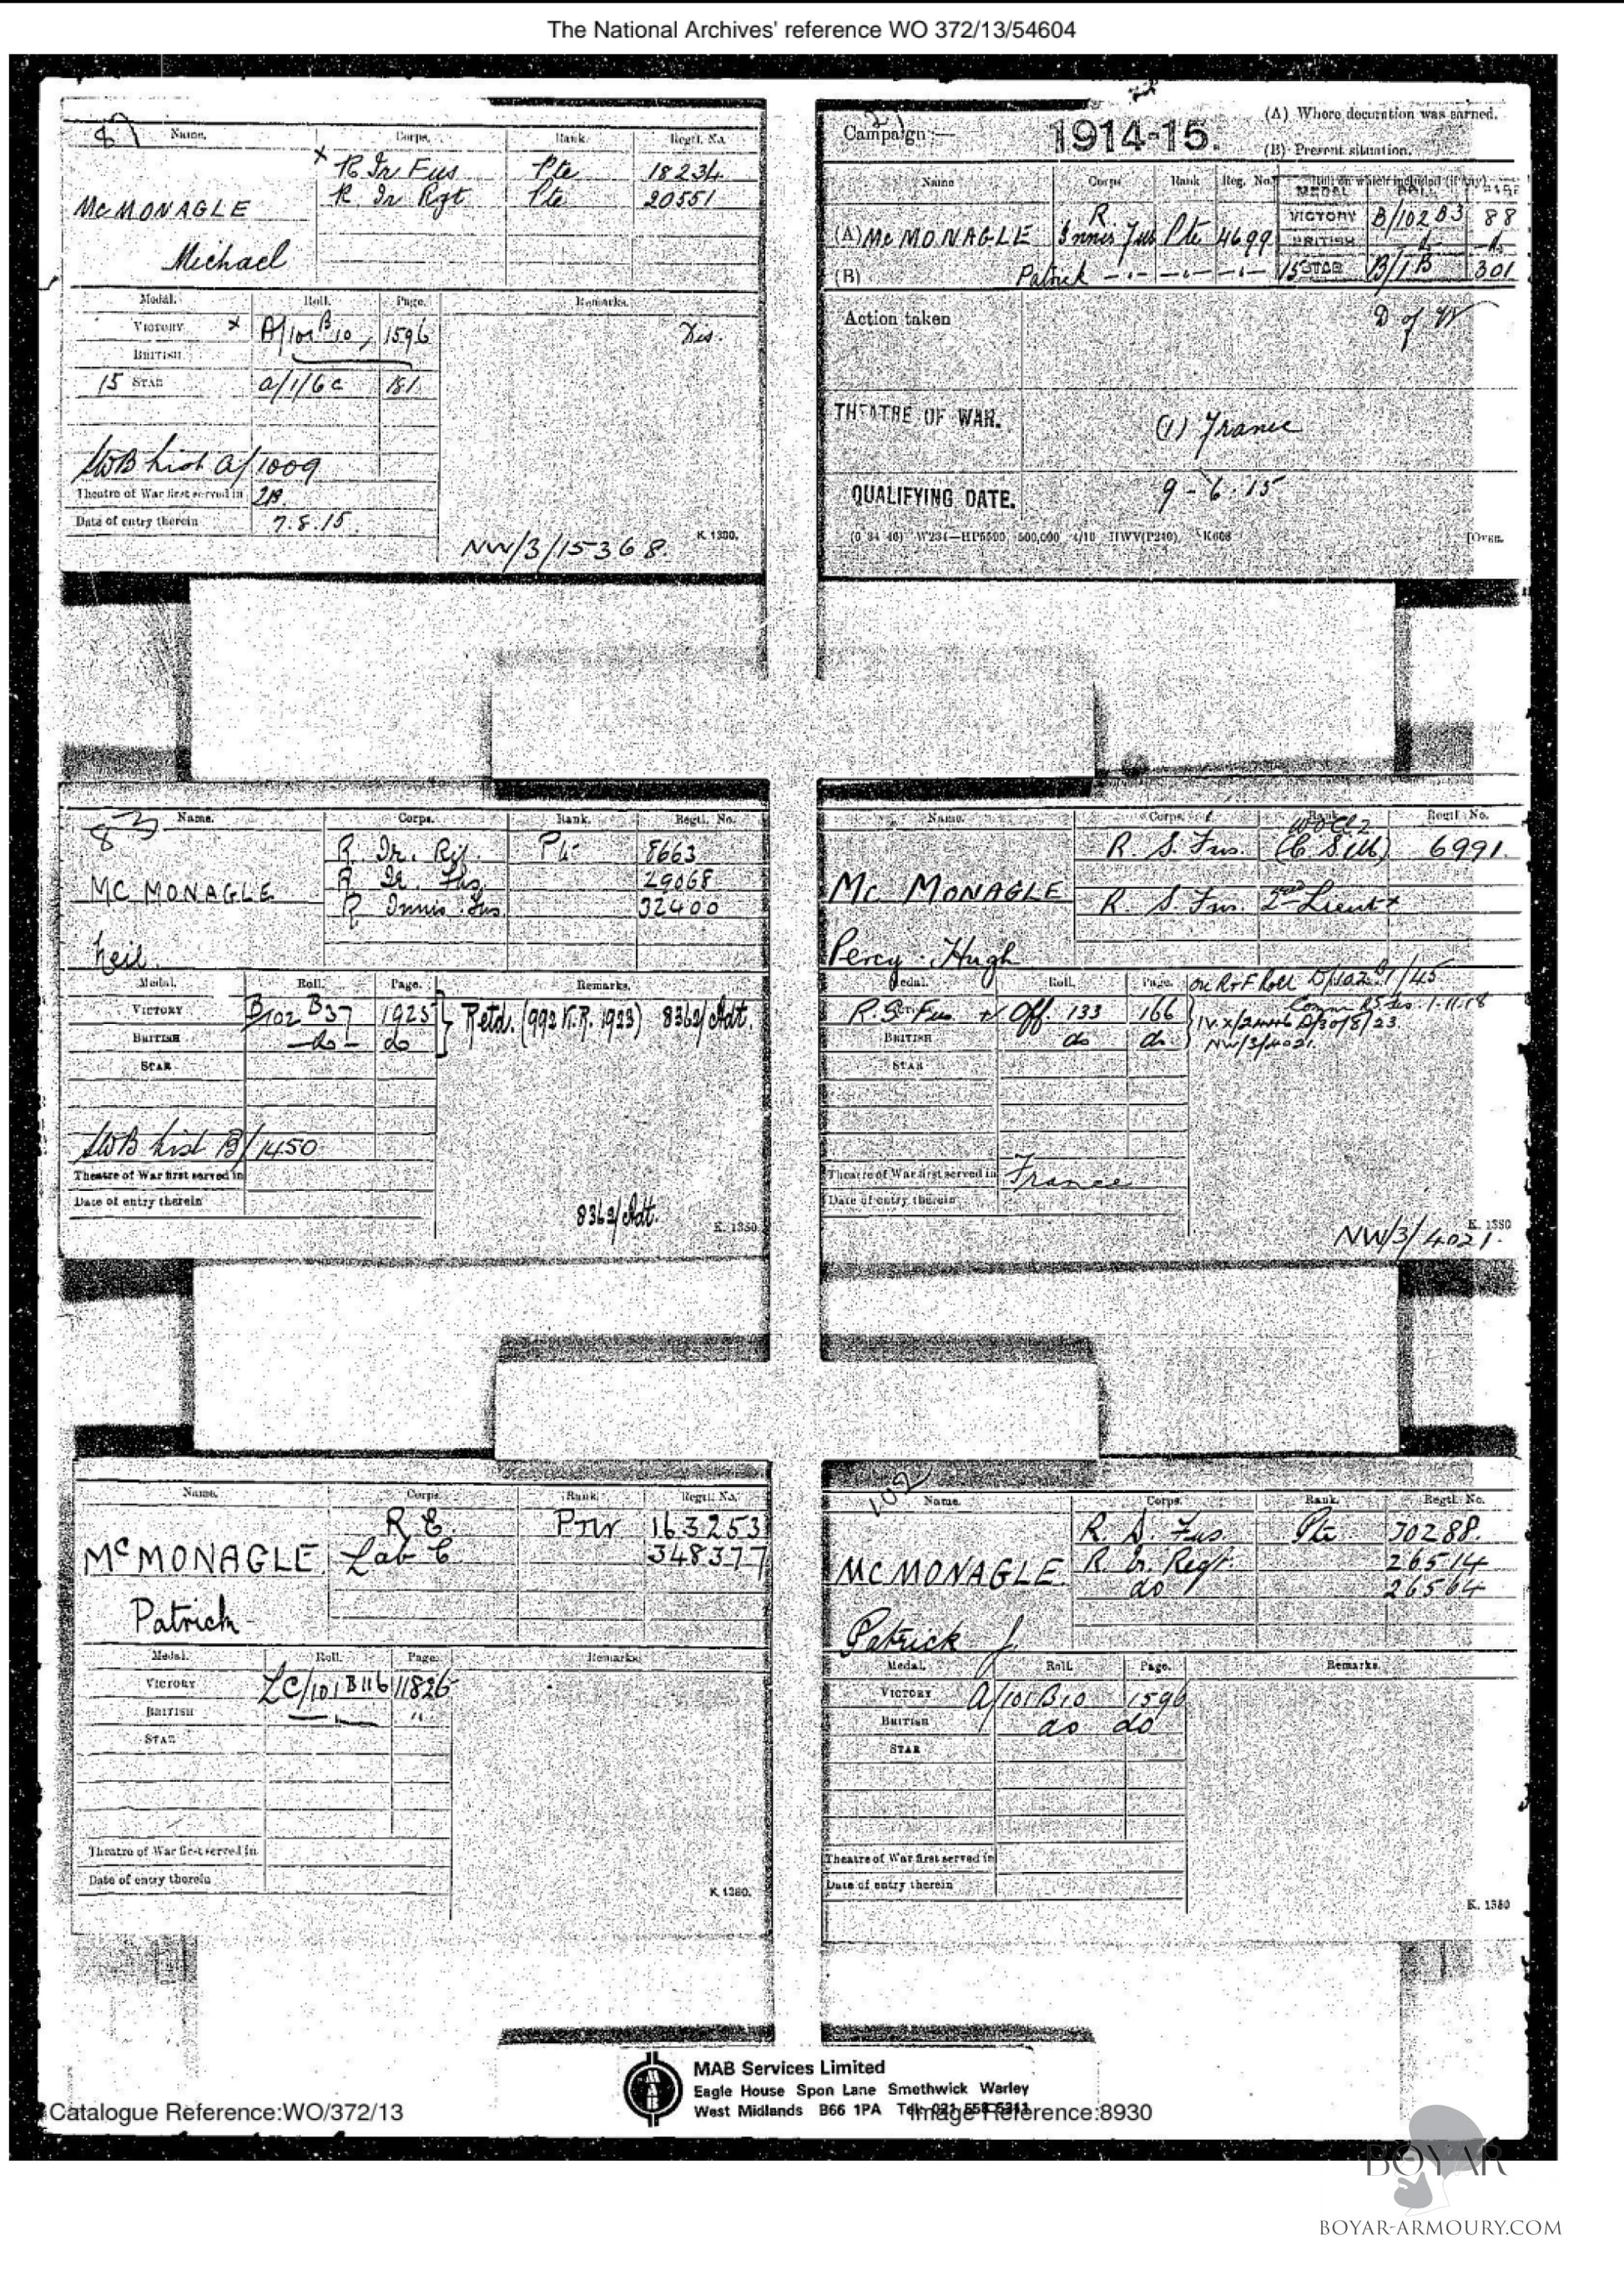 The National Archives' reference WO 372/13/54604
Name. Corps. Rank. Regtl. No.
x R Ir Fus Pte 18234
McMONAGLE R. Ir Rgt Pte 20551
Michael
Medal. Roll. Page. Remarks.
VICTORY x A/101 B10, 1596 Dis.
BRITISH
15 STAR a/1/6c 181
SWB List a/1009
Theatre of War first served in 2B.
Date of entry therein 7.8.15.
NW/3/15368 K. 1380.
Campaign:— 1914-15.
(A) Where decoration was earned.
(B) Present situation.
Name Corps Rank Reg. No. Roll on which included (if any)
MEDAL ROLL PAGE
R. VICTORY B/102 B3 88
(A) McMONAGLE Innis Fus Pte 4699 BRITISH do do
(B) Patrick —"— —"— —"— 15 STAR B/1B 301
Action taken D of W
THEATRE OF WAR. (1) France
QUALIFYING DATE. 9-6-15
[OVER.
83
Name. Corps. Rank. Regtl. No.
R. Ir. Rif. Pte 8663
MC MONAGLE R Ir. Fus. 29068
R Innis. Fus. 32400
Neil.
Medal. Roll. Page. Remarks.
VICTORY B/102 B37 1925 } Retd. (992 K.R. 1923) 8362/Adt.
BRITISH —do— do
STAR
SWB List B/1450
Theatre of War first served in
Date of entry therein
8362/Adt. K. 1380
Name. Corps. Rank Regtl. No.
WOCl2
R. S. Fus. (C S M) 6991.
Mc MONAGLE R. S. Fus. 2nd Lieut x
Percy Hugh
Medal. Roll. Page. on R&F Roll
R.S. Fus x Off. 133 166
BRITISH do do.
NW/3/4021.
STAR
Theatre of War first served in France
Date of entry therein
K. 1380
NW/3/4021.
Name. Corps. Rank. Regtl. No.
R E. Pnr 163253
McMONAGLE. Lab C 348377
Patrick
Medal. Roll. Page. Remarks
VICTORY LC/101 B116 11826
BRITISH "
STAR
Theatre of War first served in
Date of entry therein
K. 1380.
102
Name. Corps. Rank. Regtl. No.
R. D. Fus. Pte 30288.
MCMONAGLE. R. Ir. Regt. 26514
do 26564
Patrick J.
Medal. Roll. Page. Remarks.
VICTORY A/101 B10 1596
BRITISH do do
STAR
Theatre of War first served in
Date of entry therein
K. 1380
MAB
MAB Services Limited
Eagle House Spon Lane Smethwick Warley
West Midlands B66 1PA Tel: 021 558 5311
Catalogue Reference:WO/372/13 Image Reference:8930
BOYAR
BOYAR-ARMOURY.COM